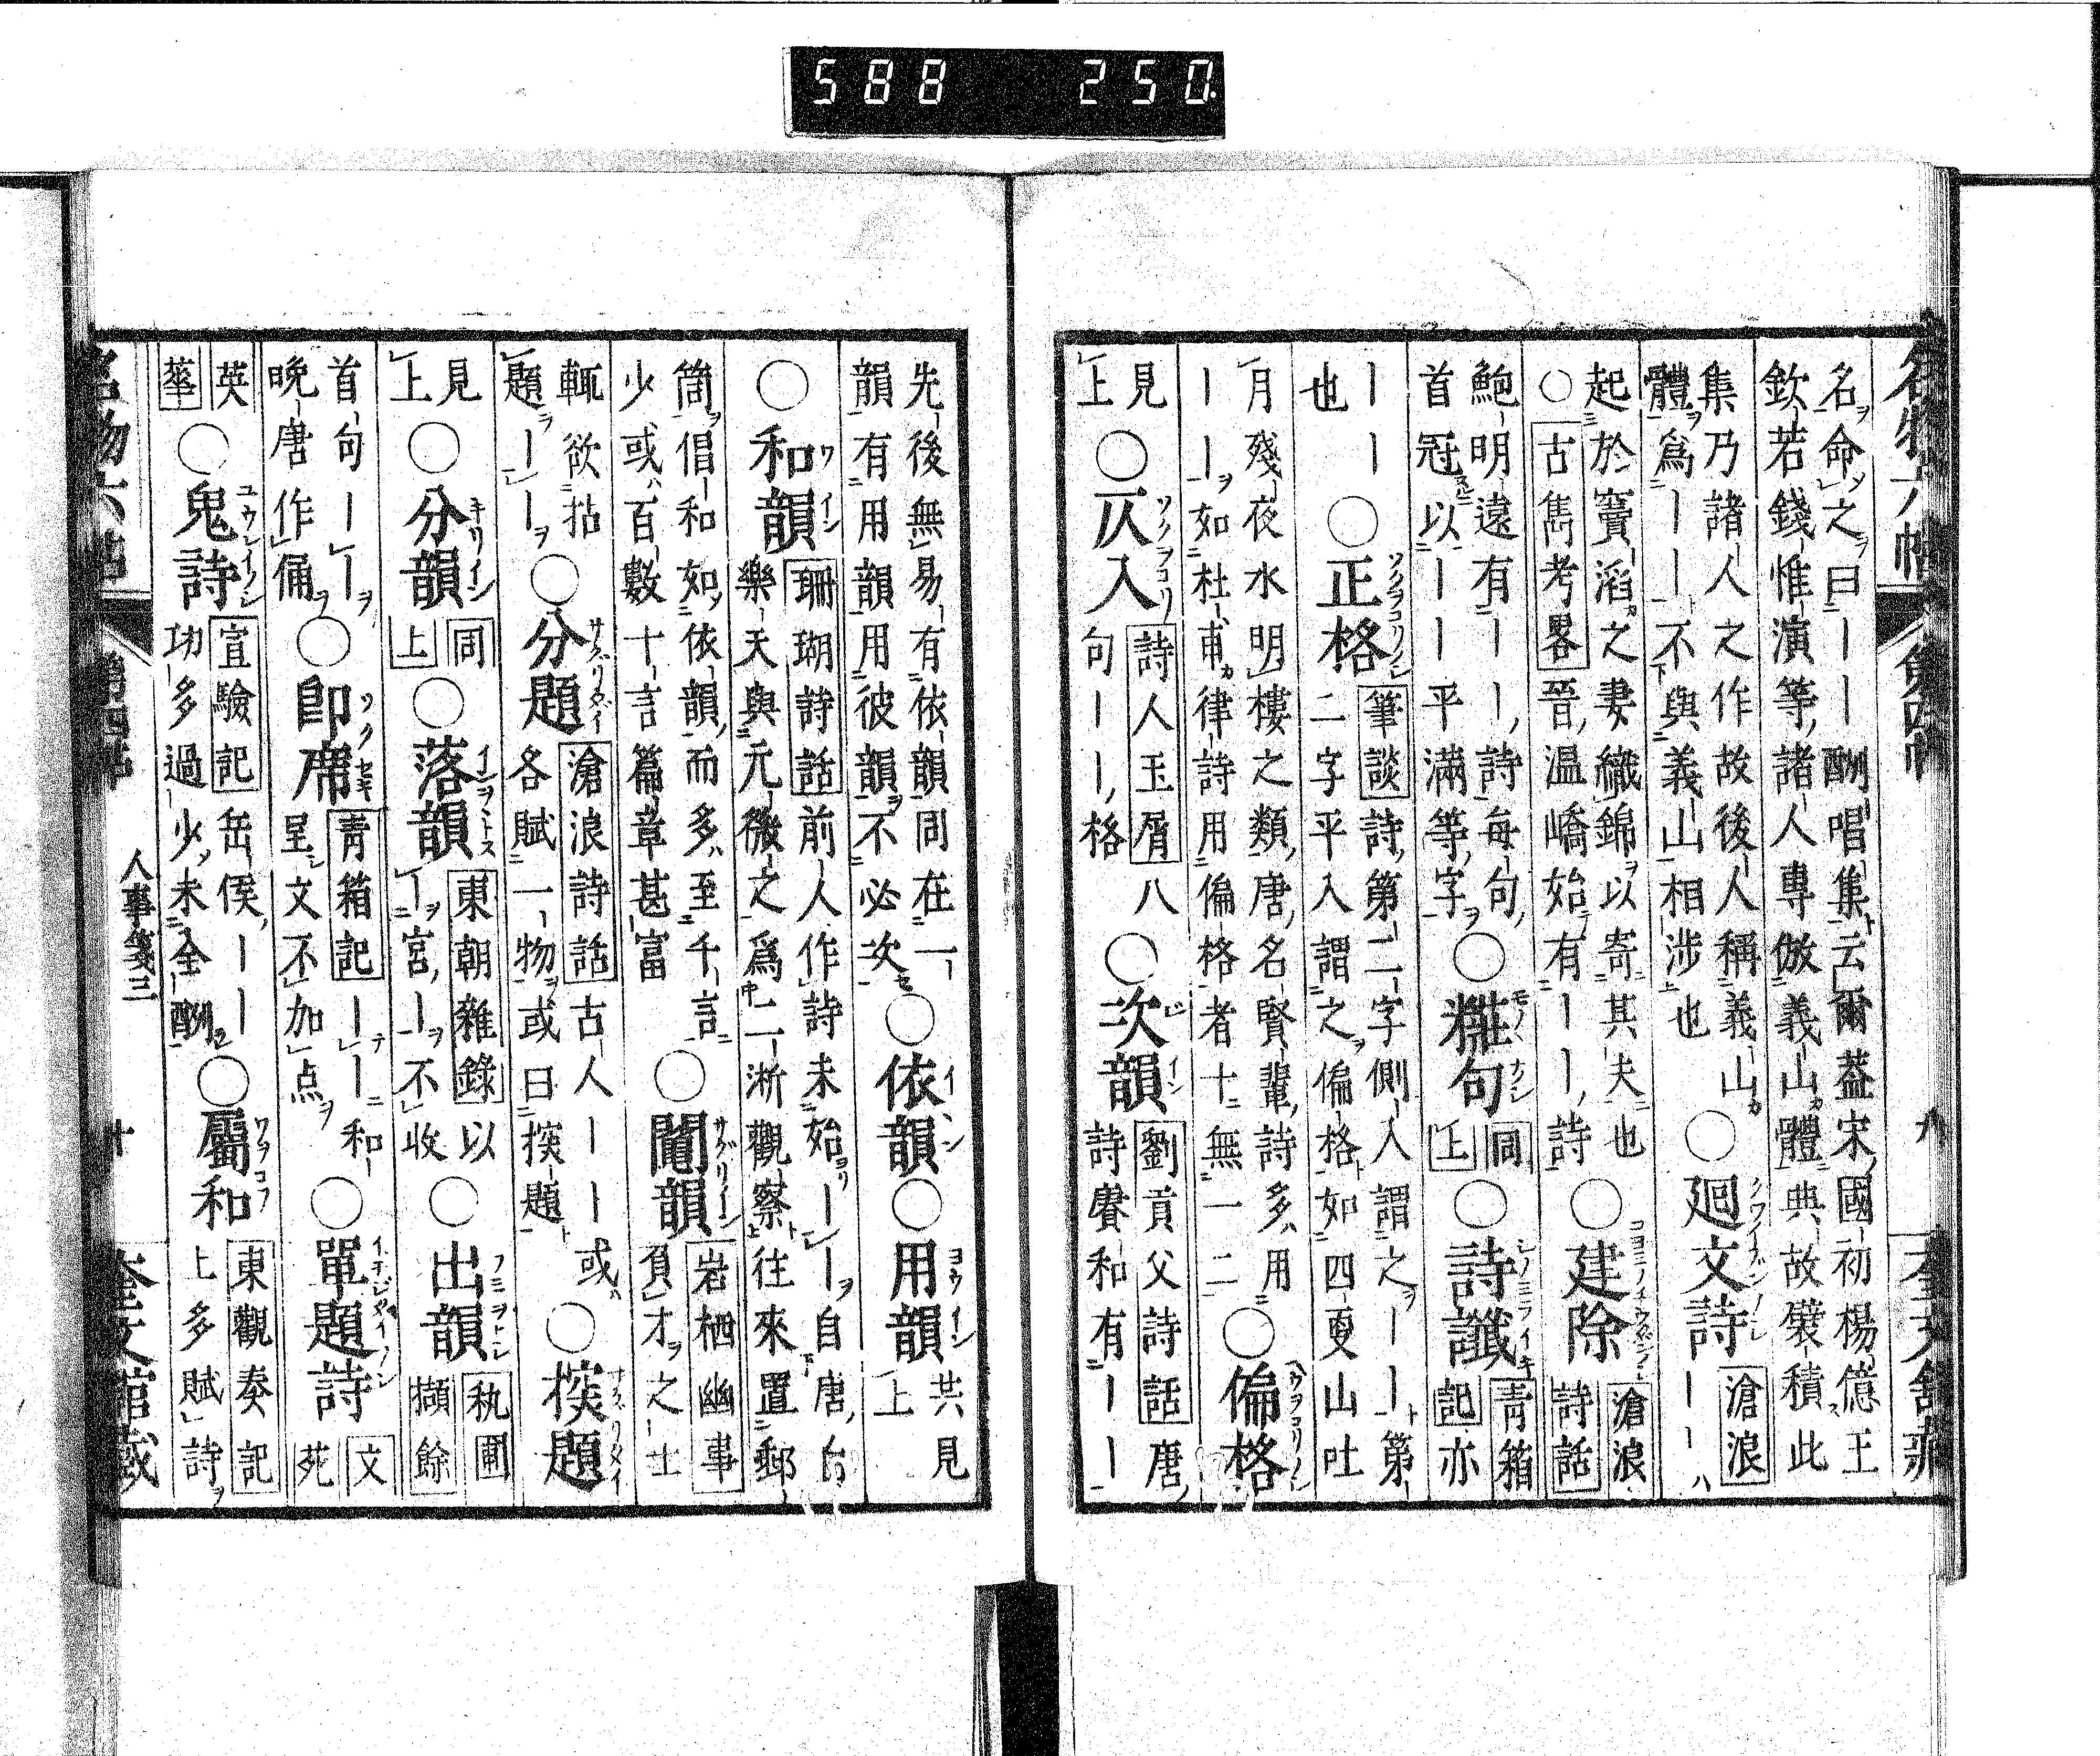 588 250
名命之曰｜｜酬唱集云爾蓋宋國初楊億王
欽若錢惟演等諸人專倣義山體典故襞積此
集乃諸人之作故後人稱義山
體爲｜｜不與義山相涉也
○廻文詩
滄浪
｜｜
起於竇滔之妻織錦以寄其夫也
○古雋考畧晉溫嶠始有｜｜詩
○建除
滄浪
詩話
鮑明遠有｜｜詩每句
首冠以｜｜平滿等字
○糚句
同
上
○詩讖
青箱
記亦
｜｜
也
○正格
筆談詩第二字側入謂之｜｜第
二字平平入謂之偏格如四更山吐
月殘夜水明樓之類唐名賢輩詩多用
｜｜如杜甫律詩用偏格者十無一二
○偏格
見
上
○仄入
詩人玉屑八
句｜｜格
○次韻
劉貢父詩話唐
詩賡和有｜｜
先後無易有依韻同在一
韻有用韻用彼韻不必次
○依韻
○用韻
共見
上
○和韻
珊瑚詩話前人作詩未始｜｜自唐白
樂天與元微之爲二浙觀察往來置郵
筒倡和如依韻而多至千言
少或百數十言篇章甚富
○鬮韻
岩栖幽事
負才之士
輒欲拈
題｜｜
○分題
滄浪詩話古人｜｜或
各賦一物或曰探題
○探題
見
上
○分韻
同
上
○落韻
東朝雜錄以
｜宮｜不收
○出韻
秇圃
擷餘
首句｜｜
晚唐作俑
○卽席
青箱記｜｜和
呈文不加点
○單題詩
文
苑
英
華
○鬼詩
宣驗記岳侯｜｜
功多過少未全酬
○屬和
東觀奏記
上多賦詩
人事箋三
十
奎文館藏